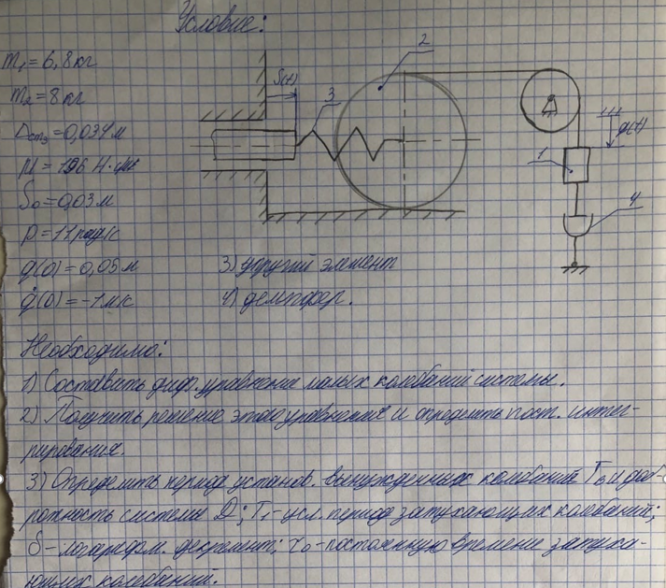 Условие:
m₁ = 6,8 кг
m₂ = 8 кг
Δст₃ = 0,034 м
μ = 196 Н·с/м
S₀ = 0,03 м
p = 11 рад/с
q(0) = 0,05 м
q̇(0) = -1 м/с
S(t)
3
2
1
q(t)
4
3) упругий элемент
4) демпфер.
Необходимо:
1) Составить диф. уравнение малых колебаний системы.
2) Получить решение этого уравнения и определить пост. интег-
рирования.
3) Определить период установ. вынужденных колебаний Tв и доб-
ротность системы D; T₁ - усл. период затухающих колебаний;
δ - логарифм. декремент; τ₀ - постоянную времени затуха-
ющих колебаний.